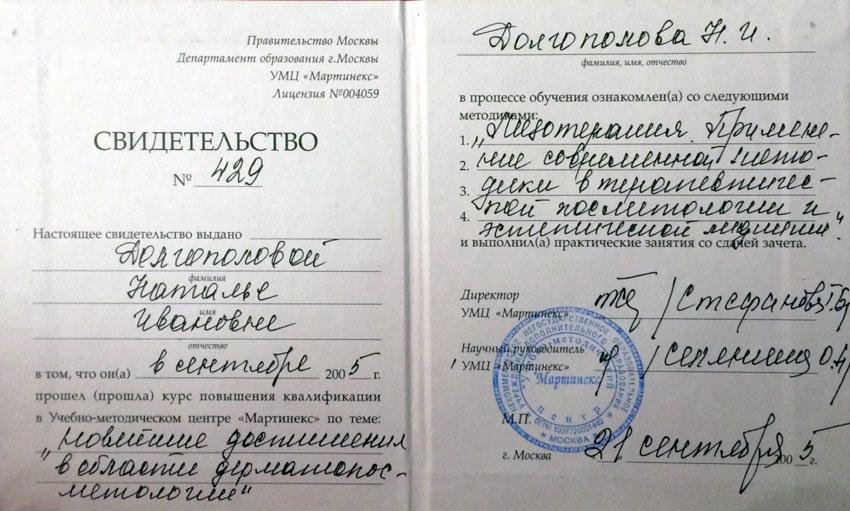 Правительство Москвы
Департамент образования г.Москвы
УМЦ «Мартинекс»
Лицензия №004059
СВИДЕТЕЛЬСТВО
№ 429
Настоящее свидетельство выдано
Долгополовой
фамилия
Наталье
имя
Ивановне
отчество
в том, что он(а) в сентябре 2005 г.
прошел (прошла) курс повышения квалификации
в Учебно-методическом центре «Мартинекс» по теме:
„Новейшие достижения
в области дерматокос-
метологии"
Долгополова Н. И.
фамилия, имя, отчество
в процессе обучения ознакомлен(а) со следующими
методиками:
1. „Мезотерапия. Примене-
2. ние современной мето-
3. дики в терапевтичес-
4. кой косметологии и
эстетической медицине".
и выполнил(а) практические занятия со сдачей зачета.
Директор
УМЦ «Мартинекс» /Стефанова
Научный руководитель
УМЦ «Мартинекс»
НЕКОММЕРЧЕСКОЕ НЕГОСУДАРСТВЕННОЕ ОБРАЗОВАТЕЛЬНОЕ
УЧРЕЖДЕНИЕ ДОПОЛНИТЕЛЬНОГО ОБРАЗОВАНИЯ
"Учебно-методический
Мартинекс
центр"
МОСКВА
М.П.
21 сентября
г. Москва 2005 г.